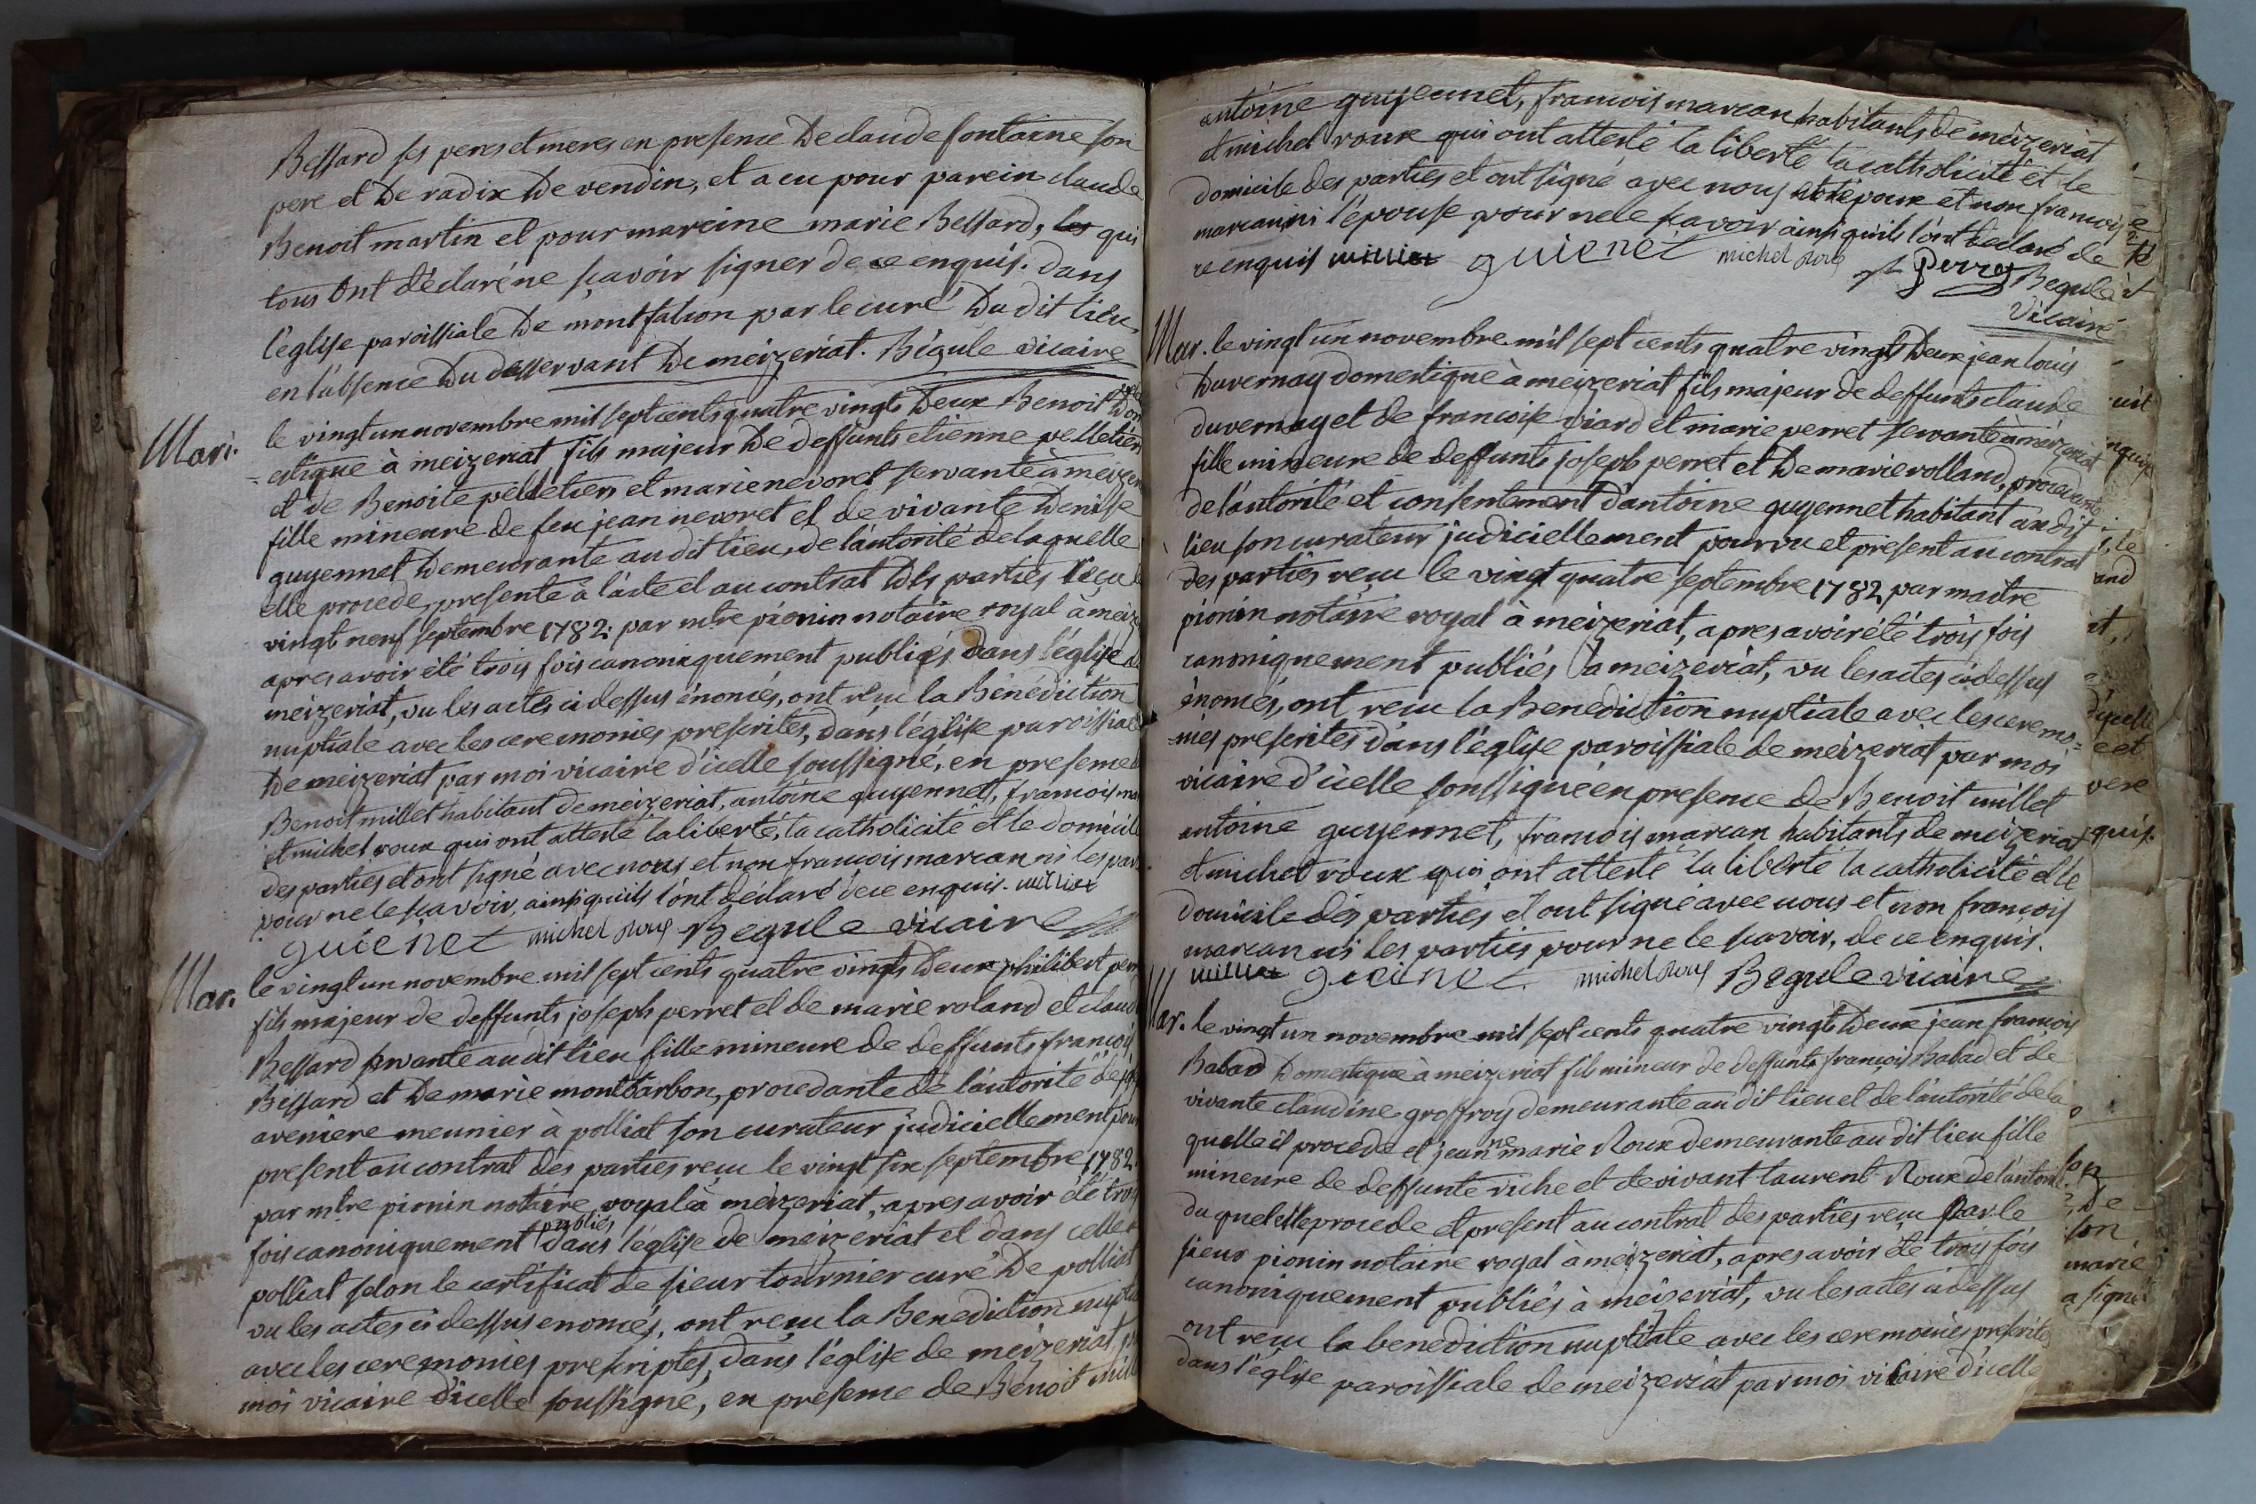 Bessard ses peres et meres en presence De claude fontaine son
pere et De radix De vendin, et a eu pour parein claude
Benoit martin et pour mareine marie Bessard, les qui
tous Ont déclaré ne sçavoir signer de ce enquis. Dans
l'eglise paroissiale De montfalcon par le curé Du dit lieu,
en l'absence Du desservant De meizeriat. Bégule vicaire
Mari.
le vingt un novembre mil sept cents quatre vingts Deux Benoit Dom
=estique à meizeriat fils majeur De deffunts etienne pelletier
et de Benoite pelletier et marie nevoret servante à meizer
fille mineure de feu jean nevoret et de vivante Denise
guyennet Demeurante au dit lieu, de l'autorité de laquelle
elle procede, presente à l'acte et au contrat Des parties reçu le
vingt neuf septembre 1782. par mtre pionin notaire royal à meiz
apres avoir été trois fois canoniquement publiés Dans l'église de
meizeriat, vu les actes ci dessus énoncés, ont reçu la Bénédiction
nuptiale avec les ceremonies prescrites, dans l'église paroissiale
De meizeriat par moi vicaire d'icelle soussigné, en presence de
Benoit millet habitant de meizeriat, antoine guyennet, francois mar
et michel roux qui ont attesté la liberté, la catholicité et le domicile
des parties et ont signé avec nous et non françois marcan ni les par
pour ne le sçavoir, ainsi qu'ils l'ont déclaré de ce enquis. milliet
guienet michel roux Begule vicaire
Mar.
le vingt un novembre mil sept cents quatre vingts Deux philibert perr
fils majeur de deffunts joseph perret et de marie roland et claud
Bessard servante au dit lieu fille mineure de deffunts françois
Bessard et De marie montbarbon, procedante de l'autorité de jos
aveniere meunier à polliat son curateur judiciellement pour
present au contrat des parties reçu le vingt six septembre 1782.
par mtre pionin notaire royal à meizeriat, apres avoir été trois
fois canoniquement publiés dans l'église de meizeriat et dans celle de
polliat selon le certificat de sieur tournier curé De polliat
vu les actes ci dessus enoncés, ont reçu la Benediction nuptia
avec les ceremonies prescriptes, dans l'église de meizeriat par
moi vicaire d'icelle soussigné, en presence de Benoit mille
antoine guyennet, francois marcan habitants de meizeriat
et michel roux qui ont attesté la liberté la catholicité et le
domicile des parties et ont signé avec nous et l'époux et non francois
marcan ni l'épouse pour ne le sçavoir ainsi qu'ils l'ont déclaré de
ce enquis milliet guienet michel roux
Perret Begule
Vicaire
Mar.
le vingt un novembre mil sept cents quatre vingts Deux jean louis
Duvernay domestique à meizeriat fils majeur de deffunts claude
duvernay et de francoise viard et marie perret servante à meizeriat
fille mineure de deffunts joseph perret et De marie rolland, procedante
de l'autorité et consentement d'antoine guyennet habitant au dit
lieu son curateur judiciellement pourvu et présent au contrat
des parties reçu le vingt quatre septembre 1782 par maitre
pionin notaire royal à meizeriat, apres avoir été trois fois
canoniquement publiés à meizeriat, vu les actes ci dessus
énoncés, ont reçu la Benediction nuptiale avec les ceremo=
=nies prescrites dans l'église paroissiale de meizeriat par moi
vicaire d'icelle soussigné en presence de Benoit millet
antoine guyennet, francois marcan habitants de meizeriat
et michel roux qui ont attesté la liberté la catholicité et le
domicile des parties et ont signé avec nous et non françois
marcan ni les parties pour ne le sçavoir, de ce enquis.
milliet guienet michel roux Begule vicaire
Mar.
le vingt un novembre mil sept cents quatre vingts Deux jean françois
Babad Domestique à meizeriat fils mineur de deffunts françois Babad et de
vivante claudine groffroy demeurante au dit lieu et de l'autorité de la
quelle il procede et jeanne marie Roux demeurante au dit lieu fille
mineure de deffunte viche et de vivant laurent Roux de l'autorité
du quel elle procede et present au contrat des parties reçu par le
sieur pionin notaire royal à meizeriat, apres avoir été trois fois
canoniquement publiés à meizeriat, vu les actes ci dessus
ont reçu la benediction nuptiale avec les ceremonies prescrites
dans l'église paroissiale de meizeriat par moi vicaire d'icelle